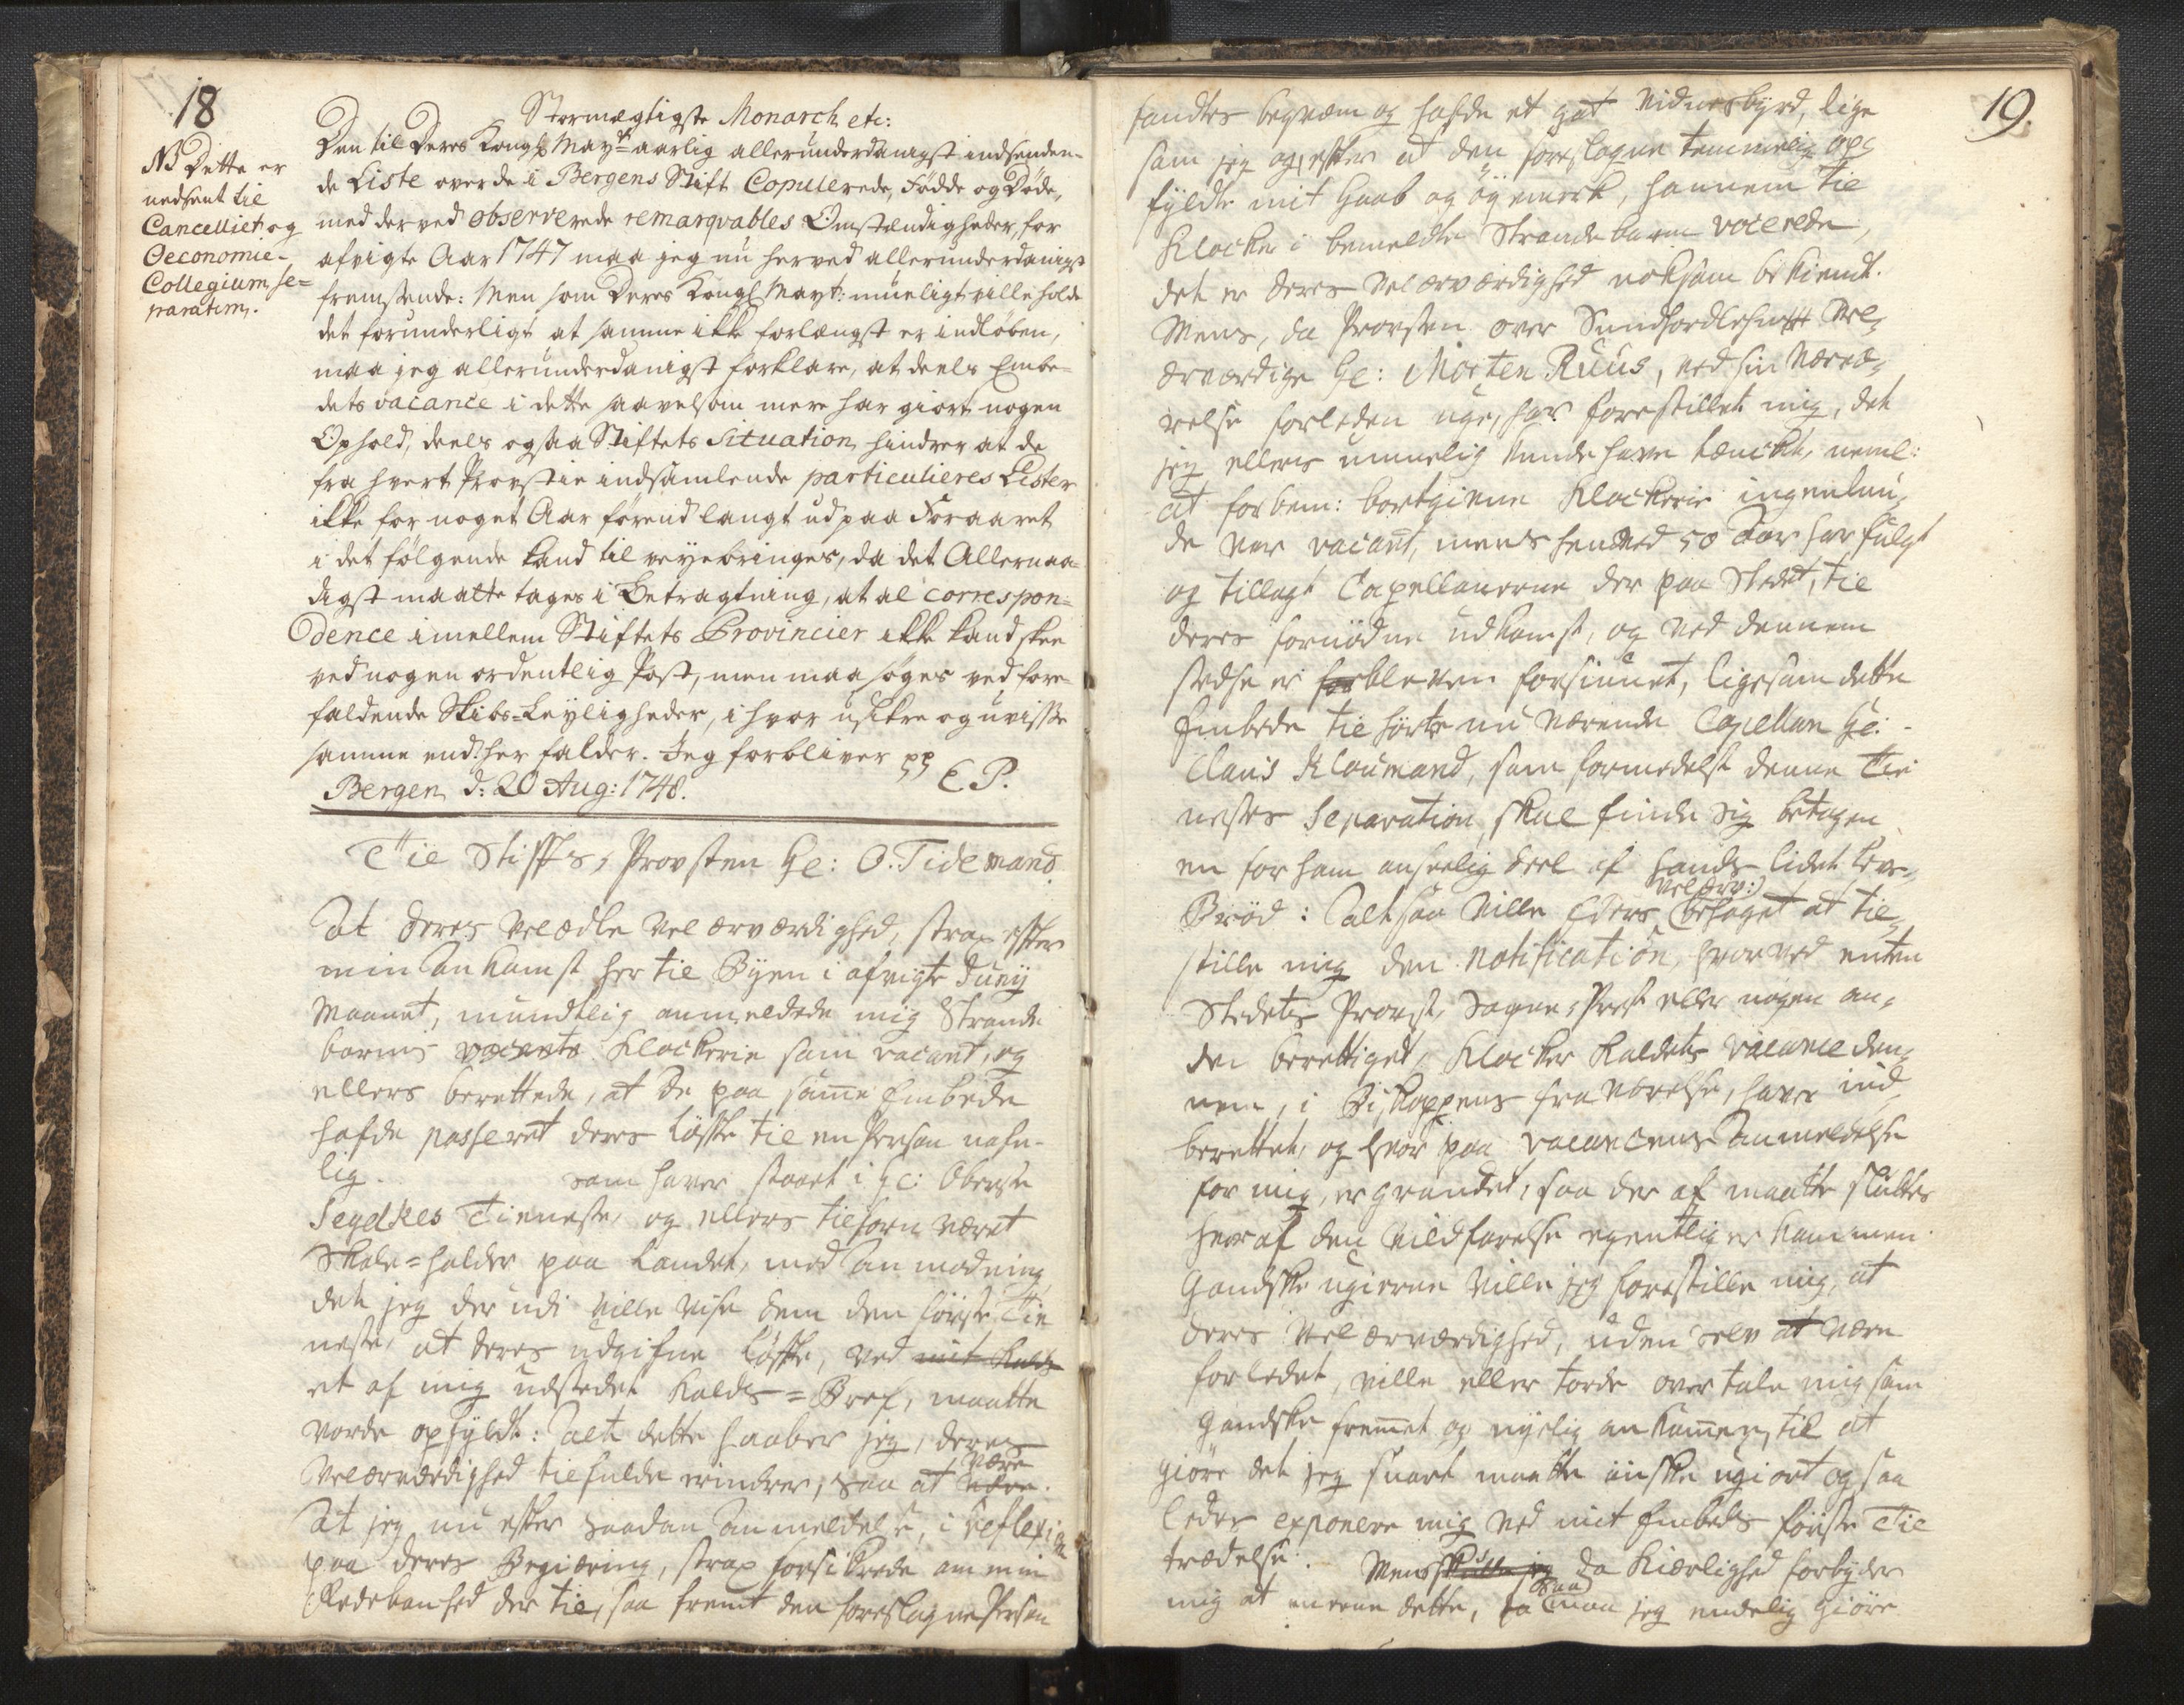 18
NB Dette er
nedsent til
Cancelliet og
Oeconomie-
Collegium se=
paratim.
Stormægtigste Monarch etc:
Den til Deres Kongl May.t aarlig allerunderdanigst indsenden-
de Liste over de i Bergens Stift Copulerede, Fødde og Døde,
med derved observerede remarqvables Omstændigheder, for
afvigte Aar 1747 maa jeg nu herved allerunderdanigst
fremsende: Men som Deres Kongl Mayt: mueligt ville holde
det forunderligt at samme ikke forlængst er indløben,
maa jeg allerunderdanigst forklare, at deels Embe-
dets vacance i dette saavelsom mere har giort nogen
Ophold, deels ogsaa Stiftets Situation hindrer at de
fra hvert Provstie indsamlende particulieres Lister
ikke for noget Aar førend langt ud paa Foraaret
i det følgende kand til veyebringes, da det Allernaa-
digst maatte tages i Betragtning, at al correspon-
dence imellem Stiftets Provincier ikke kand skee
ved nogen ordentlig Post, men maa søges ved fore-
faldende Skibs=Leyligheder, i hvor usikre og uvisse
samme end her falder. Jeg forbliver pp
Bergen d: 20 Aug: 1748. E P.
Til Stifts, Provsten Hr: O. Tidemand.
At Deres Velædle Velærværdighed, strax efter
min Ankomst her til Byen i afvigte Junij
Maanet, mundtlig anmeldede mig Strande
barms vacante Klockerie som vacant, og
ellers berettede, at De paa samme Embede
hafde passeret deres Løfte til en Person nafn-
lig som haver staaet i Hr: Oberste
Seydkes Tieneste, og ellers tilforn været
Skole=holder paa Landet, med Anmodning
det jeg der udi ville vise dem den første Tie
neste, at deres udgifne Løfte, ved mit Kalds
et af mig udstedet Kalds=Bref, maatte
vorde opfyldt: Alt dette haaber jeg, deres
Velærværdighed tilfulde erindrer, saa at være
At jeg nu efter saadan Anmeldelse, i reflexion
paa deres Begiæring, strax forsikrede om min
Redebonhed der til, saa fremt den foreslagne Person
19.
fandtes beqvem og hafde et got Vidnesbyrd, lige
som jeg og, efter at den foreslagne temmelig op,
fyldte mit Haab og øyemerk, hannem til
Klocker i bemeldte Strandebarm vocerede,
det er Deres Velærværdighed noksom bekiendt.
Mens, da Provsten over Sundhordlehn Vel,
ærværdige Hr: Morten Ruus, ved sin Nærvæ,
relse forleden uge, har forestillet mig, det
jeg ellers umuelig kunde have tænckt, neml:
at forbem: bortgivne Klockerie ingenlun,
de var vacant, mens hen ved 50 Aar har fulgt
og tillagt Capellanerne der paa Stedet, til
deres fornødne udkomst, og ved dennem
stedse er forbleven forsiunet, ligesom dette
Embede tilhørte nu værende Capellan Hr:
Claus Kloumand, som formedelst denne Tie
nestes Separation, skal finde sig betagen
en for ham anseelig deel af hands lidet Lev-
Brød: Altsaa ville Eders Velærv: behaget at til,
stille mig den Notification, hvorved enten
Stedets Provst, Sogne,Prest eller nogen an,
den berettiget, Klocker Kaldets vacance den,
nem, i Biskoppens fraværelse, haver ind,
berettet, og hvor paa vacancens Anmeldelse
for mig, er grundet, saa der af maatte sluttes
hvoraf den vildfarelse egentlig er kommen.
Gandske ugierne ville jeg forestille mig, at
Deres Velærværdighed, uden selv at være
forledet, ville eller torde overtale mig som
gandske fremmet og nyelig ankommen, til at
giøre det jeg snart maatte ønske ugiort og saa
ledes exponere mig ved mit Embeds første Til
trædelse. Mens skulle jeg da Kiærlighed forbyder
mig at meene dette, saa maa jeg endelig giøre